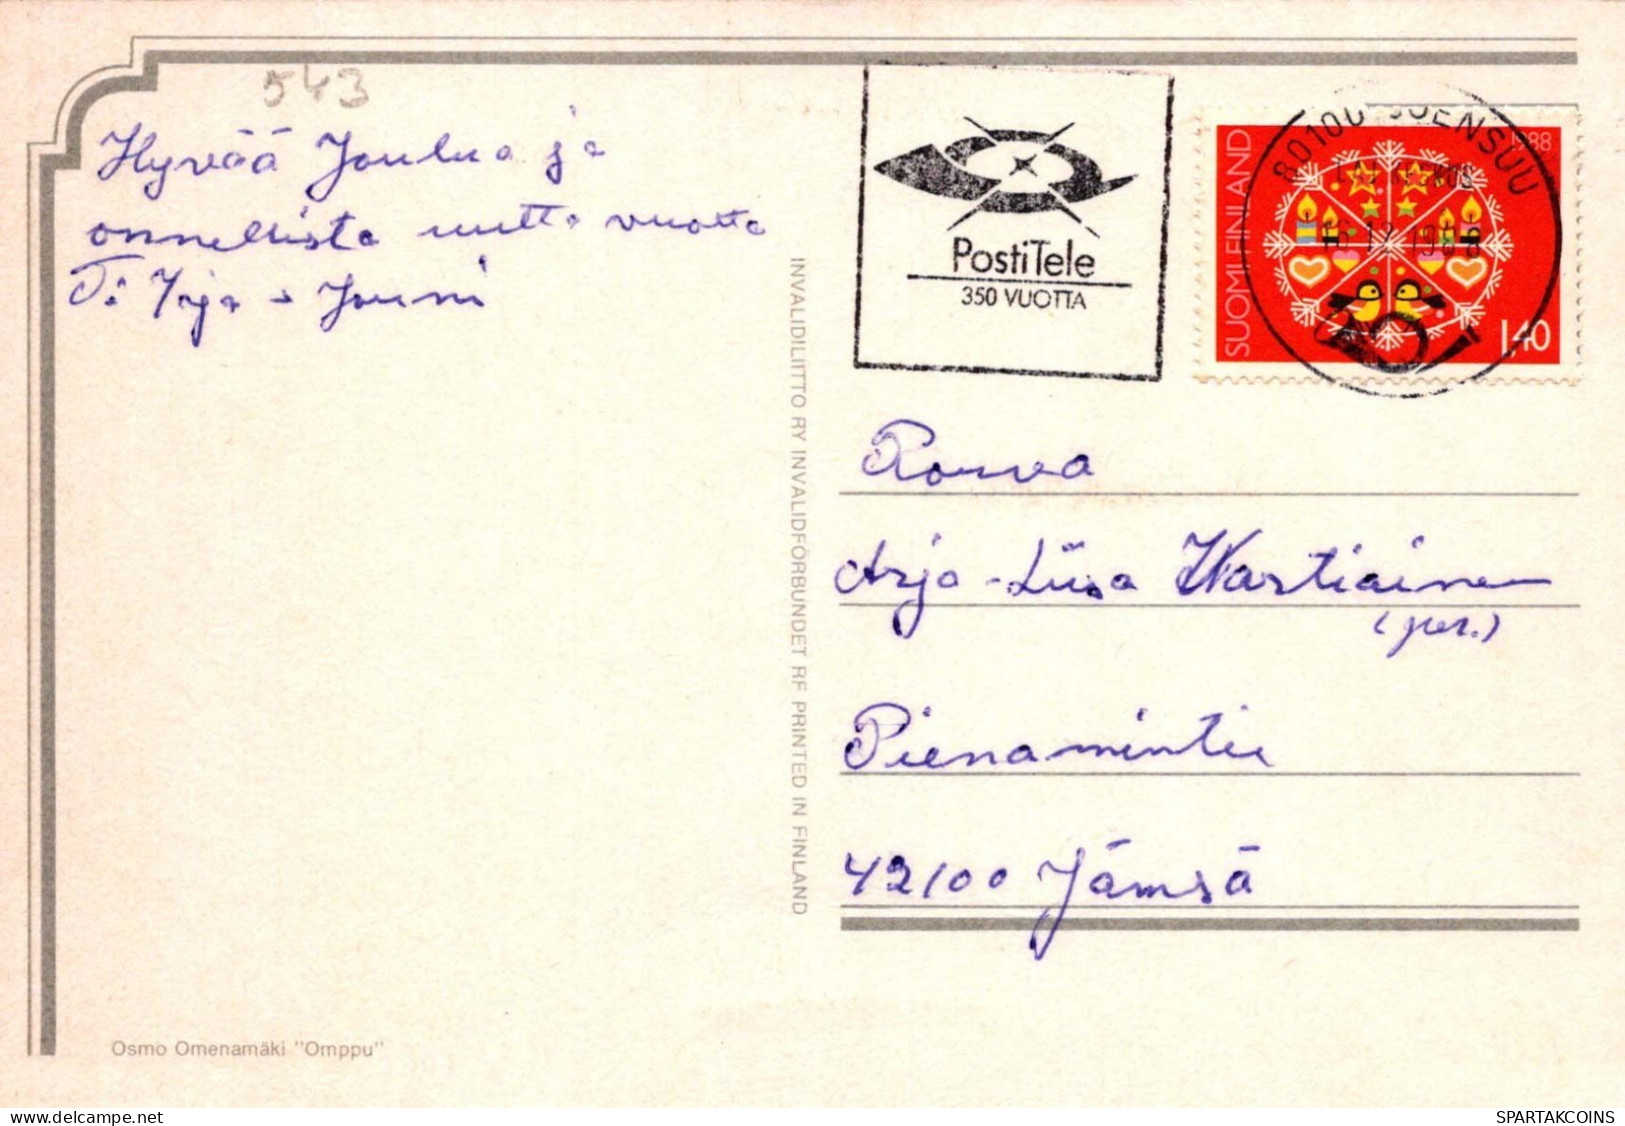 543
Hyvää Joulua ja
onnellista uutta vuotta
T: Irja - Jouni
INVALIDILIITTO RY INVALIDFÖRBUNDET RF PRINTED IN FINLAND
PostiTele
350 VUOTTA
80100 JOENSUU
12 1988
SUOMI FINLAND
1988
1,40
Rouva
Arja-Liisa Wartiainen
(per.)
Pienamintie
42100 Jämsä
Osmo Omenamäki "Omppu"
delcampe.net
SPARTAKCOINS